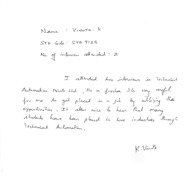 Name : Vinoth. K
STR Code : STR 7125
No. of interview attended : 2
I attended two interviews in Technical
Automation Pvt.Ltd. As a fresher It's very useful
for me to get placed in a job by utilizing this
opportunities. I'm also nice to hear that many
students have been placed in core industries through
Technical Automation.
K. Vinoth